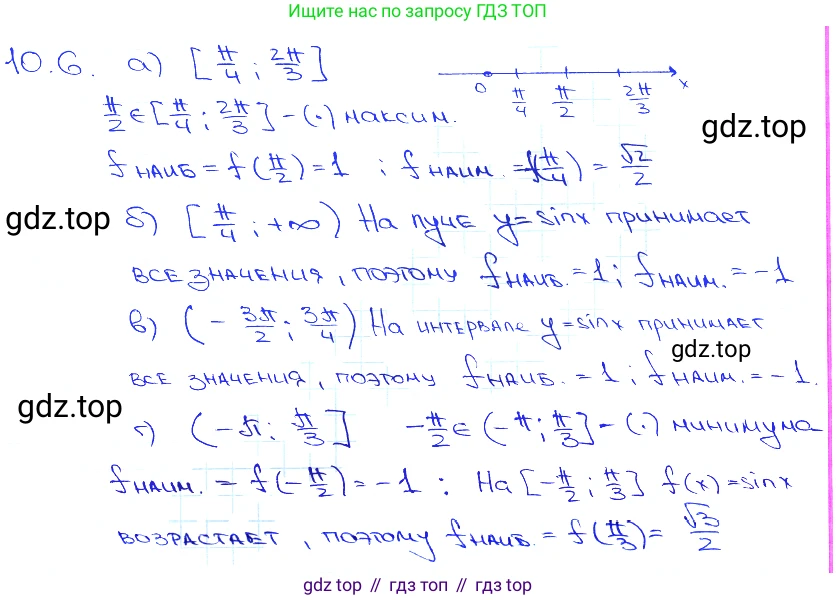 Ищите нас по запросу ГДЗ ТОП
10.6. а) [π/4 ; 2π/3]
0 π/4 π/2 2π/3 x
π/2 ∈ [π/4 ; 2π/3] - (·) максим.
gdz.top
f наиб = f(π/2) = 1 ; f наим. = f(π/4) = √2/2
gdz.top
б) [π/4 ; +∞) На луче y = sinx принимает
все значения, поэтому f наиб. = 1 ; f наим. = -1
в) (- 3π/2 ; 3π/4) На интервале y = sinx принимает
gdz.top
все значения, поэтому f наиб. = 1 ; f наим. = -1.
gdz.top
г) (-π ; π/3] -π/2 ∈ (-π ; π/3] - (·) минимума
f наим. = f(-π/2) = -1 ; На [-π/2 ; π/3] f(x) = sinx
возрастает, поэтому f наиб. = f(π/3) = √3/2
gdz.top // гдз топ // gdz.top